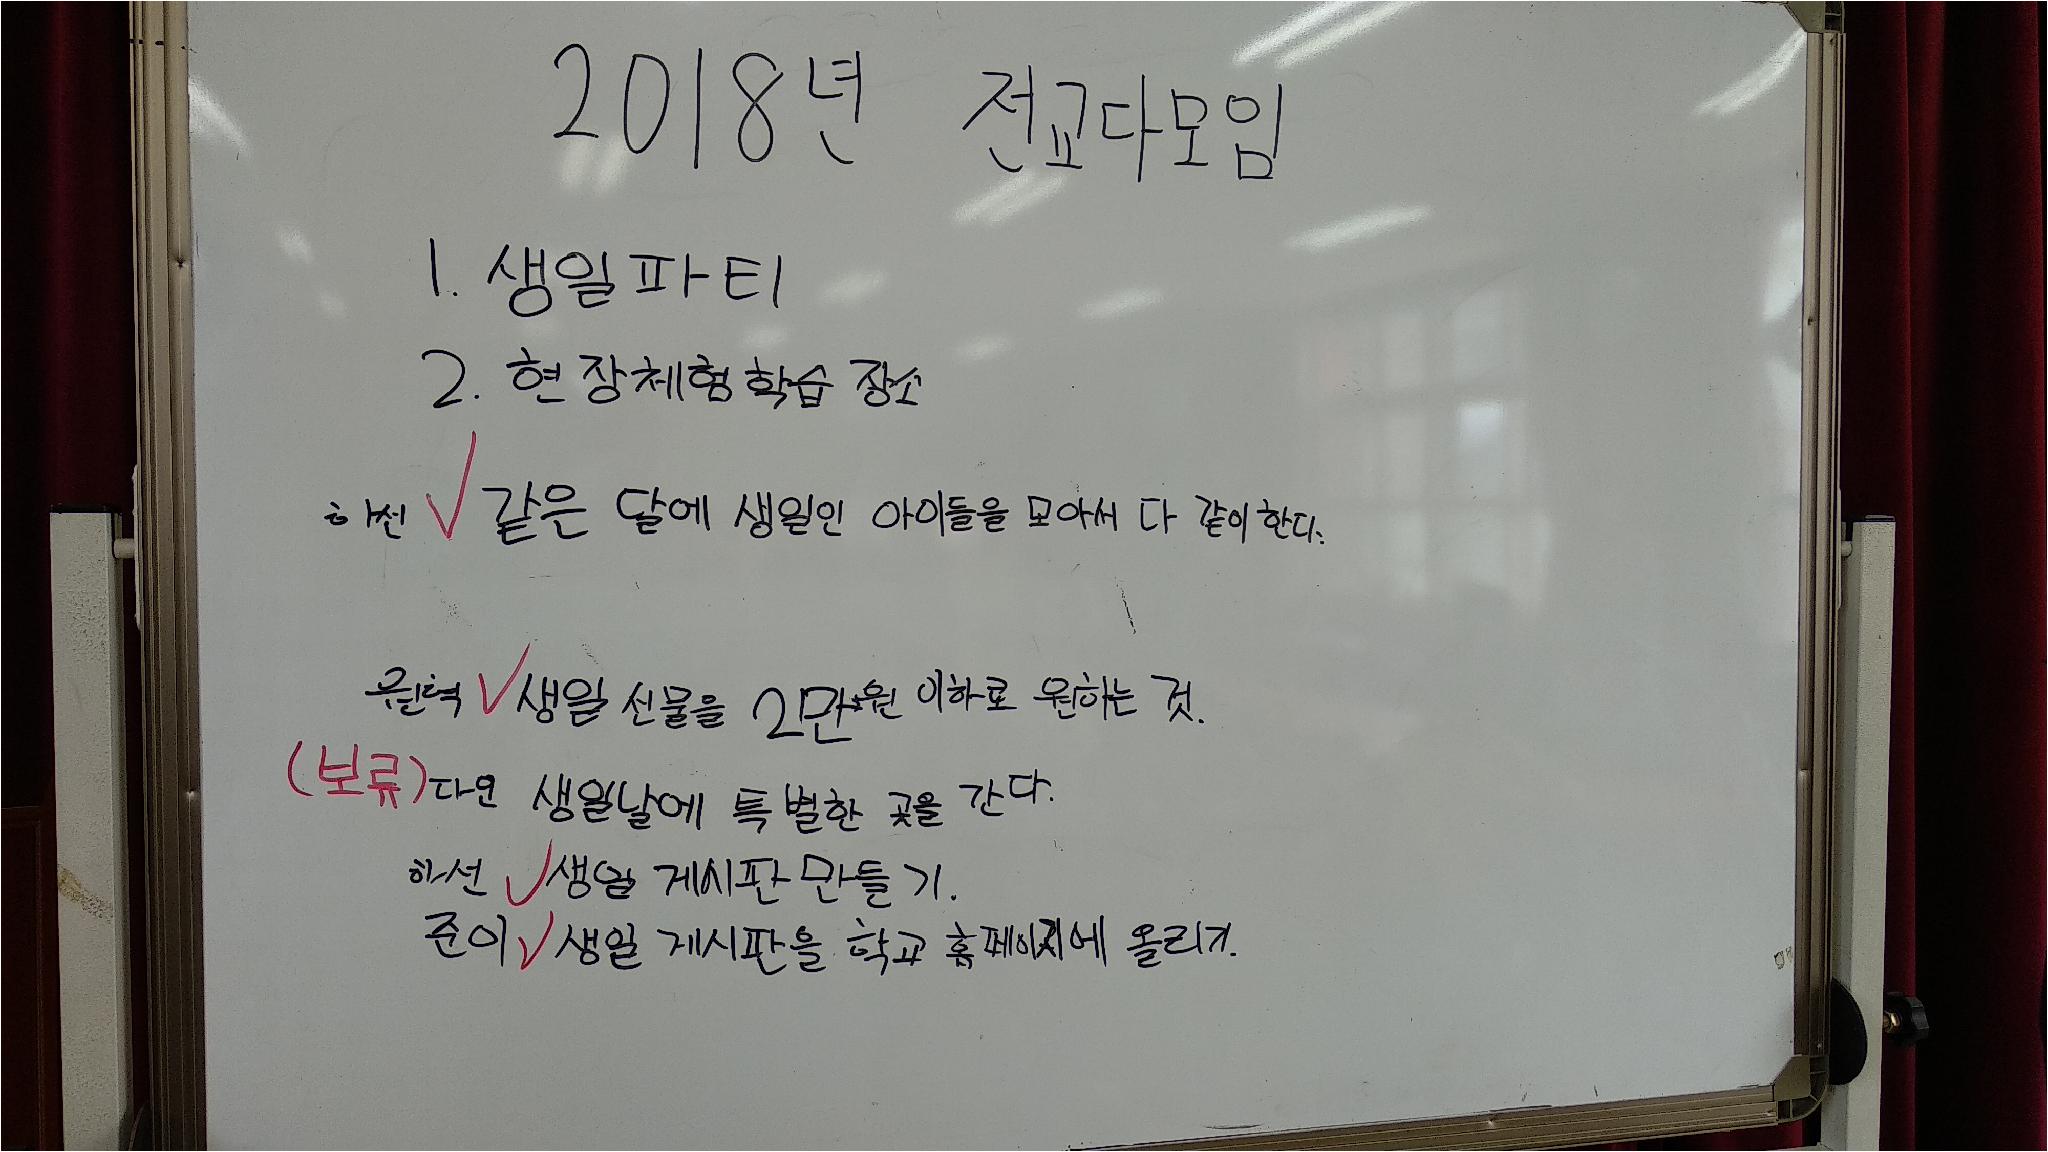 2018년 전교다모임
1. 생일파티
2. 현장체험학습 장소
하선 ✓ 같은 달에 생일인 아이들을 모아서 다 같이 한다.
✓ 생일 선물을 2만원 이하로 원하는 것.
(보류) 다연 생일날에 특별한 곳을 간다.
하선 ✓ 생일 게시판 만들기.
준이 ✓ 생일 게시판을 학교 홈페이지에 올리기.